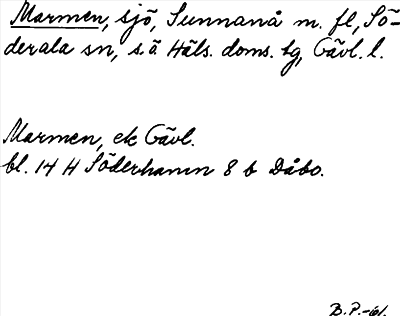 Marmen, sjö, Sunnanå m. fl, Sö-
derala sn, s.ä Häls. doms. tg, Gävl. l.
Marmen, ek Gävl.
bl. 14 H Söderhamn 8 b Dåbo.
B.P.-61.